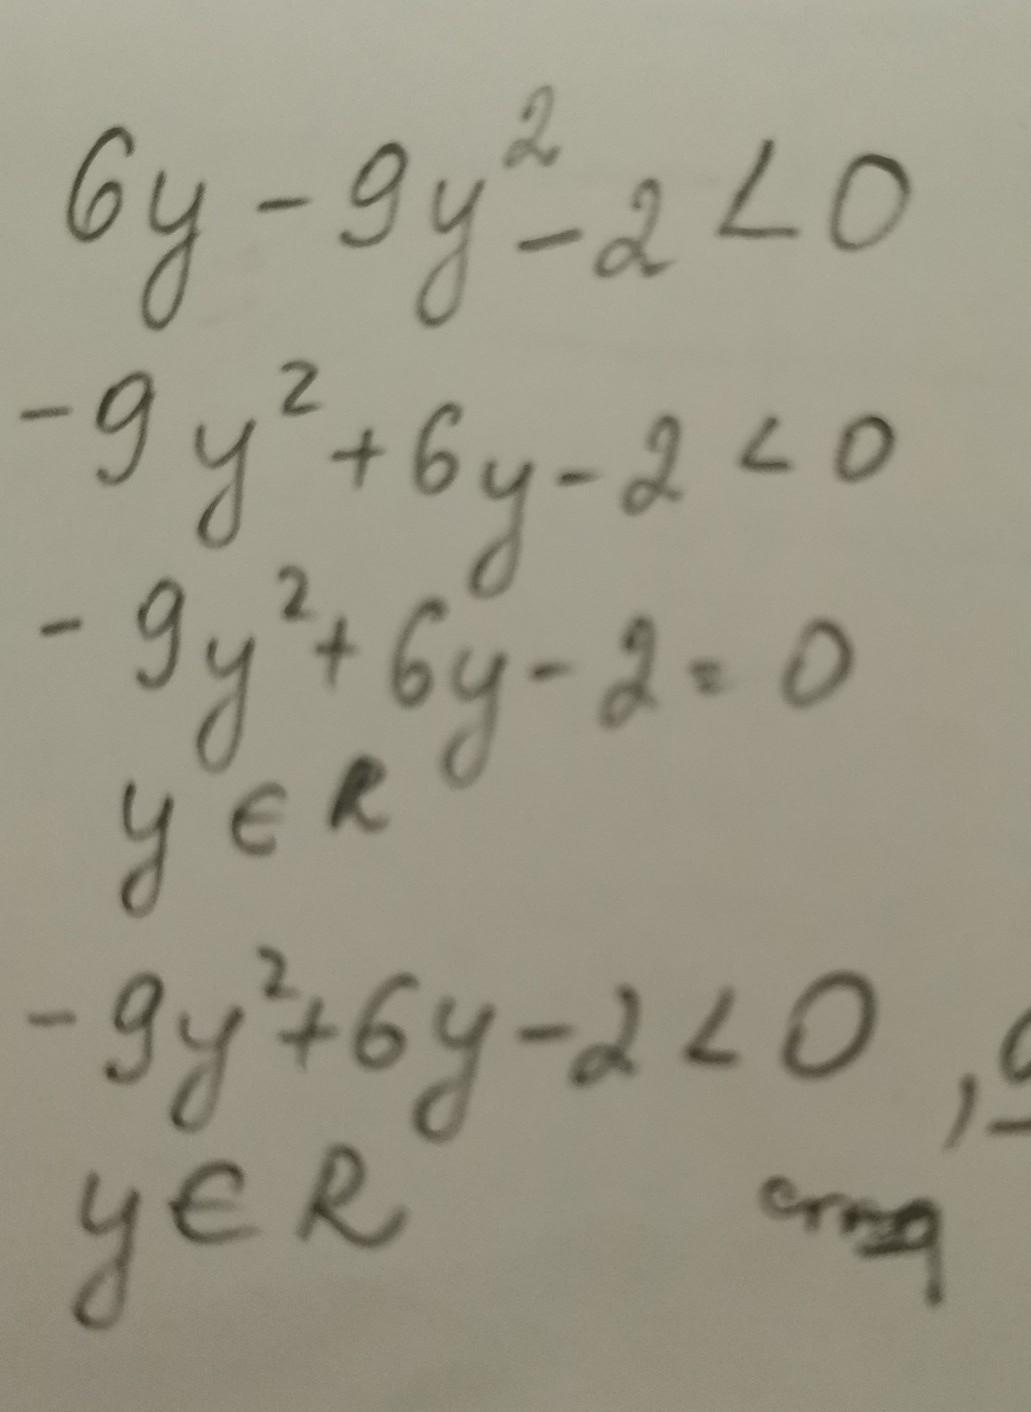 6y - 9y² - 2 < 0
- 9y² + 6y - 2 < 0
- 9y² + 6y - 2 = 0
y ∈ R
- 9y² + 6y - 2 < 0 ,
y ∈ R